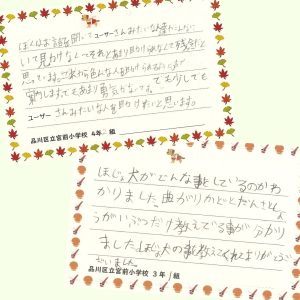 ぼくはお話を聞いてユーザーさんみたいな人達がこんなに
いて見かけなくてそれとあまり助けられなくて残念だと
思っています。これから色んな人を助けられるように
案内しますでもあまり勇気がなくて。でも少しでも
ユーザーさんみたいな人を助けたいと思います。
品川区立宮前小学校 4年 組
ほじょ犬がどんな事をしているのかわ
かりました。曲がりかどとだんさとしょ
うがいぶつだけ教えてる事が分かり
ました。ほじょ犬の事教えてくれてありがとうご
ざいました。
品川区立宮前小学校 3年 組